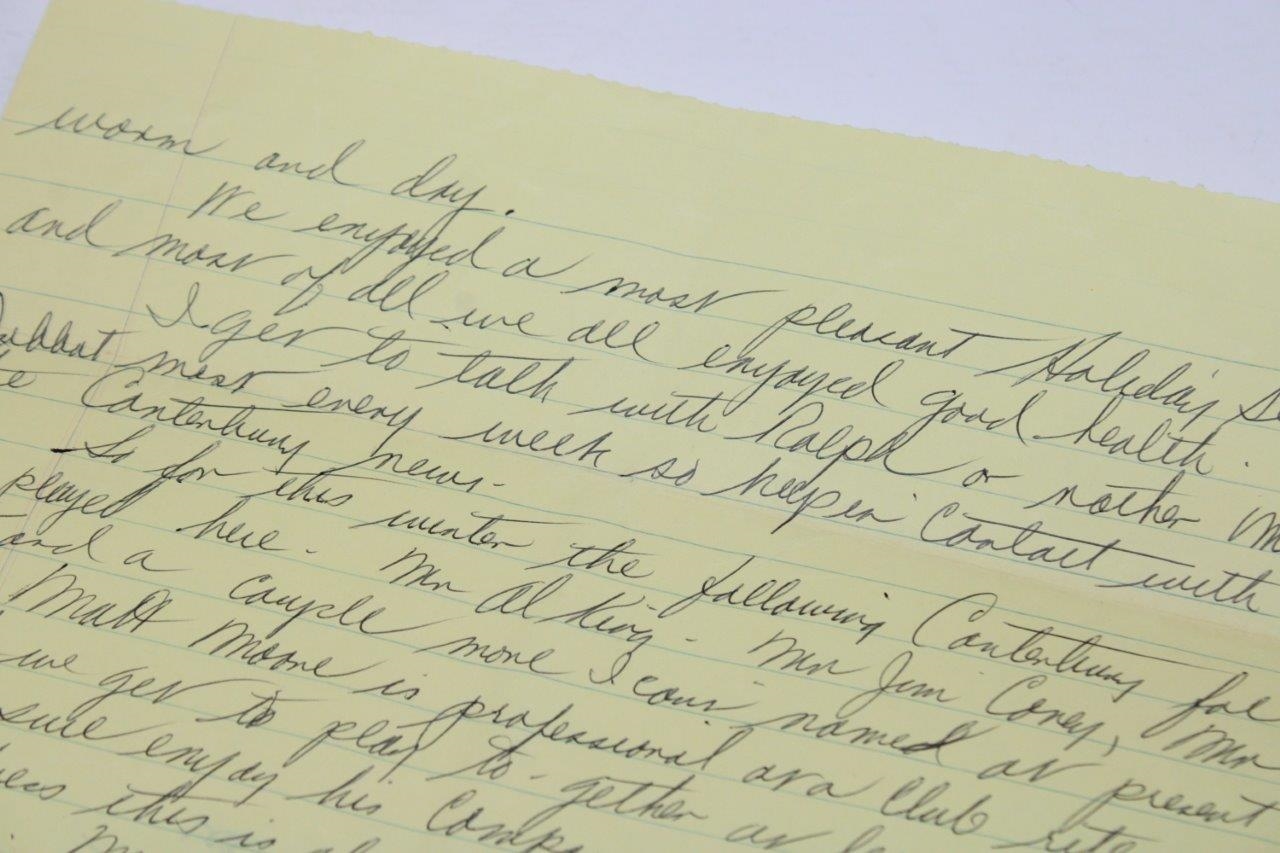 warm and dry.
We enjoyed a most pleasant Holiday Se
and most of all we all enjoyed good health.
I get to talk with Ralph or rather
most every week so keep in contact with
Canterbury news.
So for this winter the following Canterbury fol
played here. Mr Al King. Mr Jim Coney, Mr
and a couple more I can named at present
Matt Moore is professional at a Club rite
we get to play to-gether at
sure enjoy his compa
this is